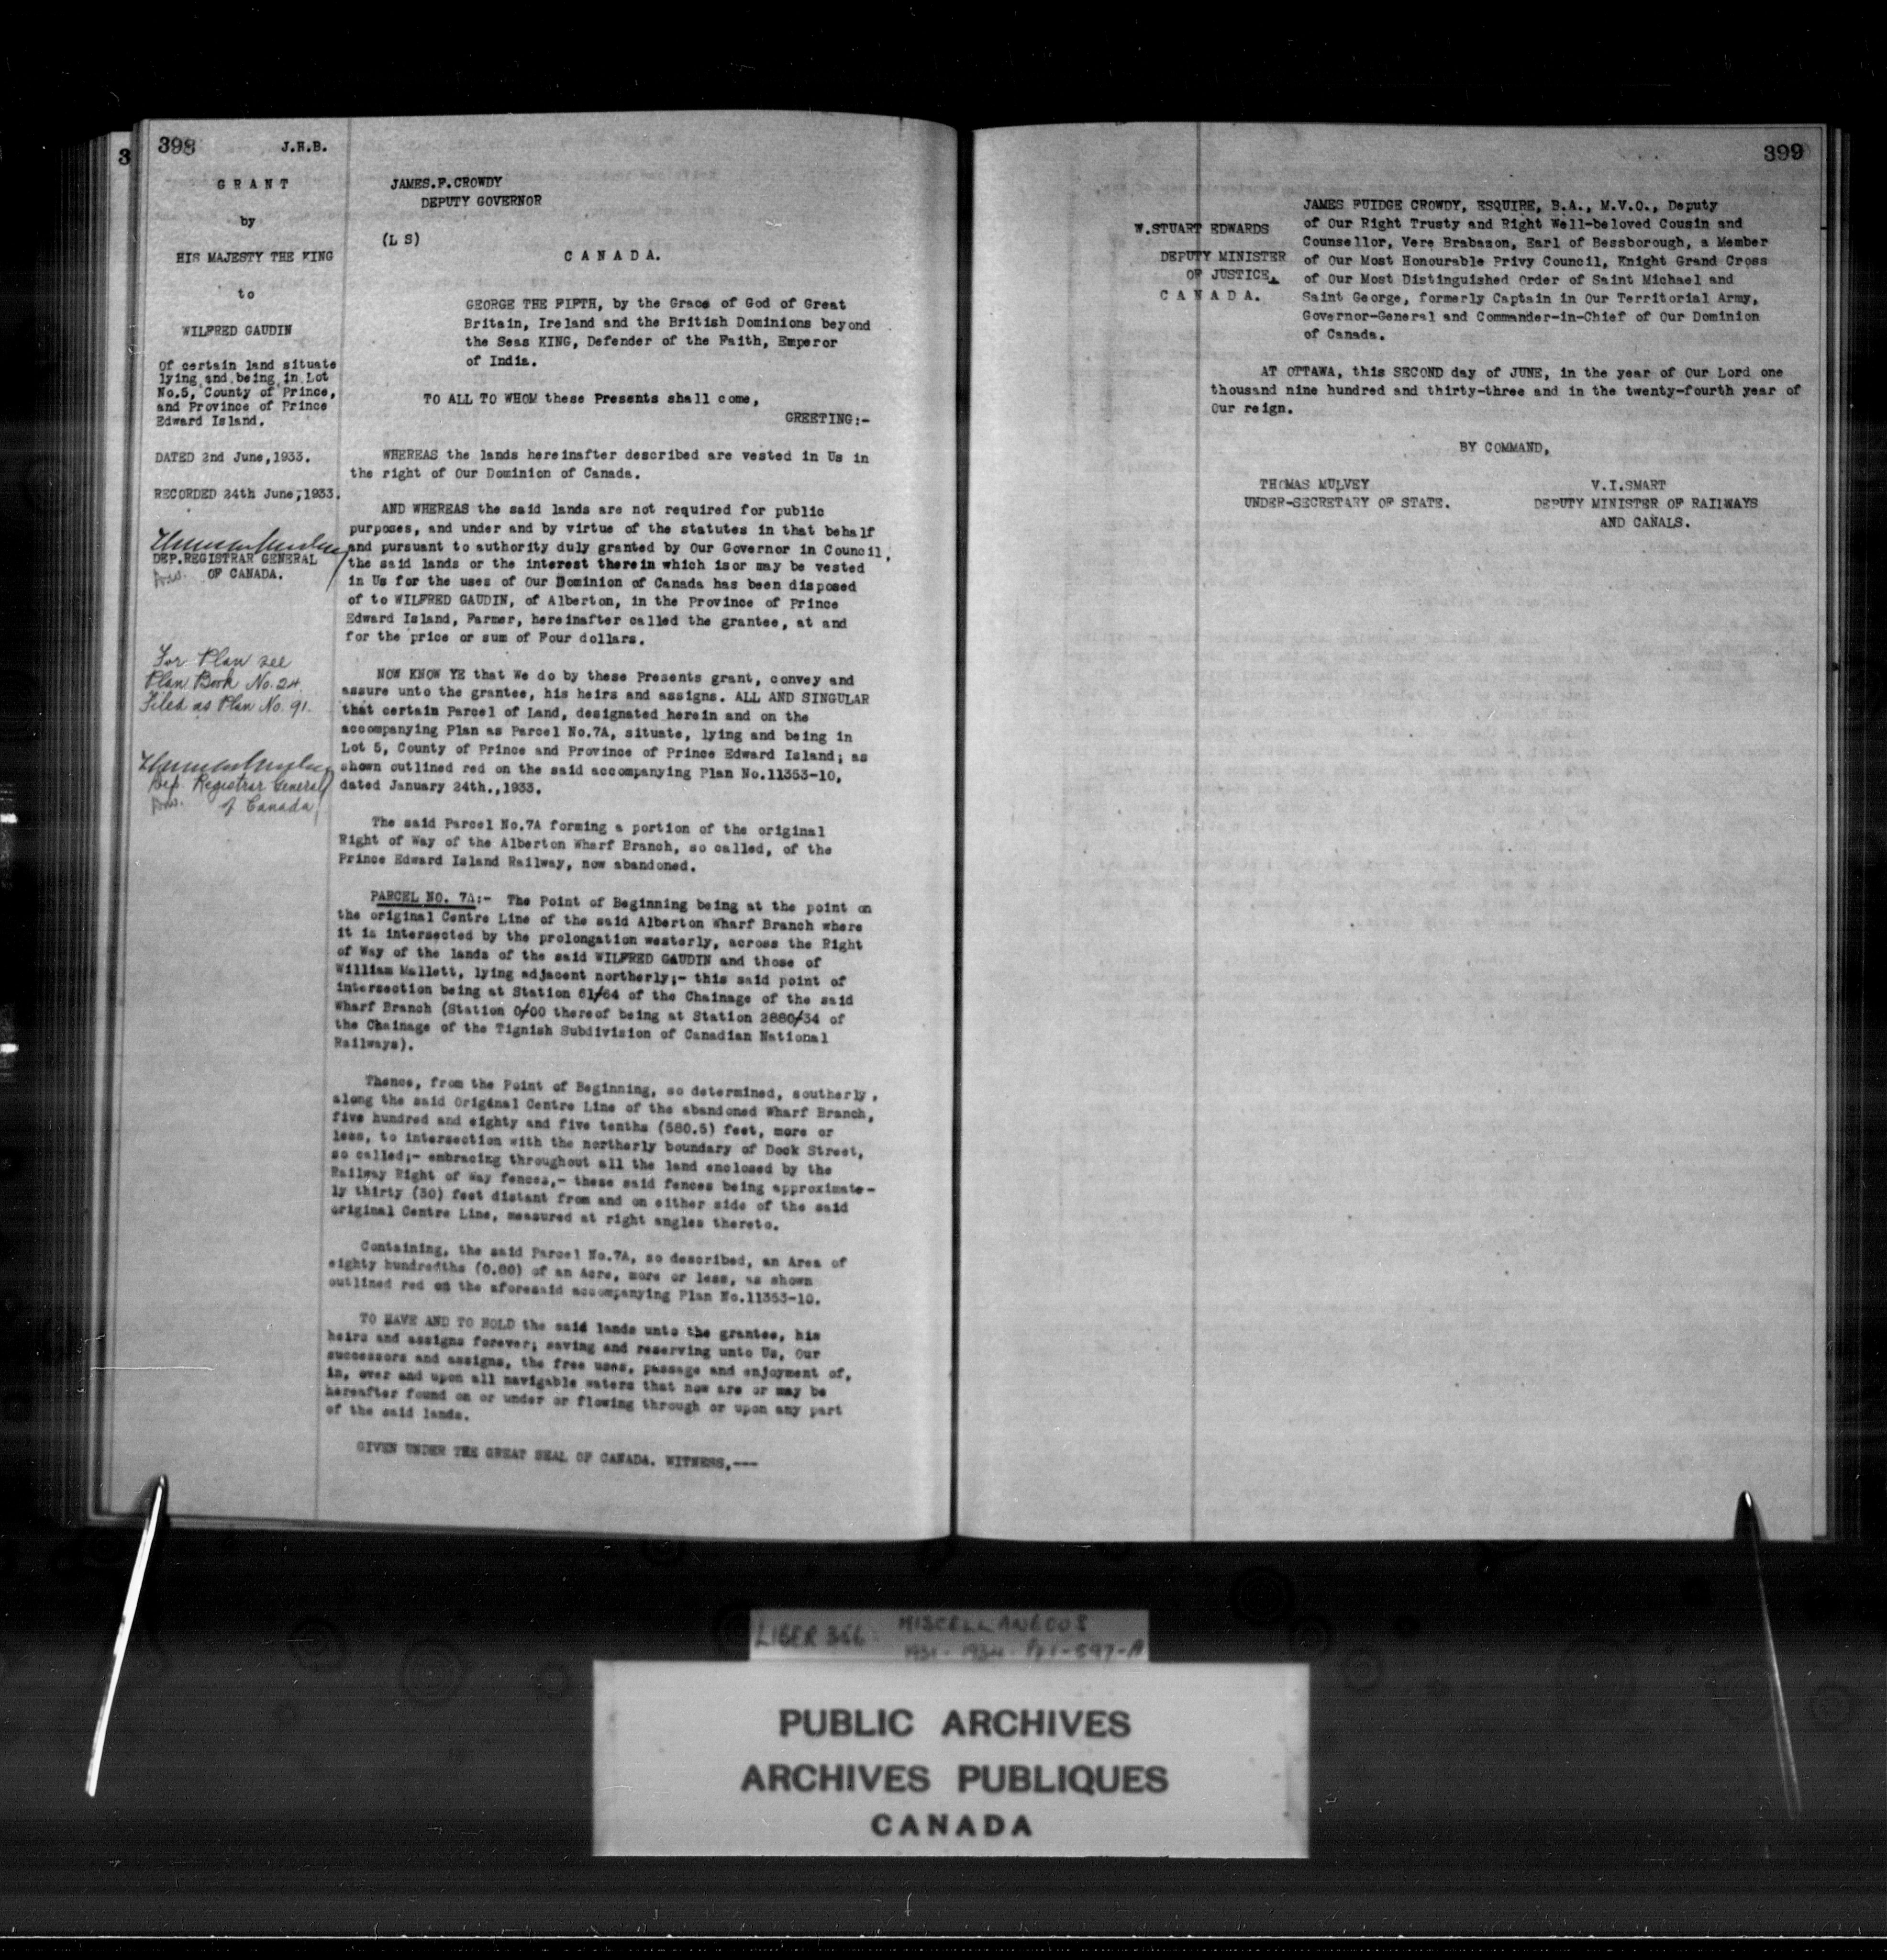 398
J.H.B.
3
G R A N T
by
HIS MAJESTY THE KING
to
WILFRED GAUDIN
Of certain land situate
lying and being in Lot
No.5, County of Prince,
and Province of Prince
Edward Island.
DATED 2nd June,1933.
RECORDED 24th June,1933.
DEP.REGISTRAR GENERAL
OF CANADA.
For Plan see
Plan Book No. 24.
Filed as Plan No. 91.
Dep. Registrar General
of Canada
JAMES.F.CROWDY
DEPUTY GOVERNOR
(L S)
C A N A D A.
GEORGE THE FIFTH, by the Grace of God of Great
Britain, Ireland and the British Dominions beyond
the Seas KING, Defender of the Faith, Emperor
of India.
TO ALL TO WHOM these Presents shall come,
GREETING:-
WHEREAS the lands hereinafter described are vested in Us in
the right of Our Dominion of Canada.
AND WHEREAS the said lands are not required for public
purposes, and under and by virtue of the statutes in that behalf
and pursuant to authority duly granted by Our Governor in Council,
the said lands or the interest therein which isor may be vested
in Us for the uses of Our Dominion of Canada has been disposed
of to WILFRED GAUDIN, of Alberton, in the Province of Prince
Edward Island, Farmer, hereinafter called the grantee, at and
for the price or sum of Four dollars.
NOW KNOW YE that We do by these Presents grant, convey and
assure unto the grantee, his heirs and assigns. ALL AND SINGULAR
that certain Parcel of Land, designated herein and on the
accompanying Plan as Parcel No.7A, situate, lying and being in
Lot 5, County of Prince and Province of Prince Edward Island; as
shown outlined red on the said accompanying Plan No.11353-10,
dated January 24th.,1933.
The said Parcel No.7A forming a portion of the original
Right of Way of the Alberton Wharf Branch, so called, of the
Prince Edward Island Railway, now abandoned.
PARCEL NO. 7A:- The Point of Beginning being at the point on
the original Centre Line of the said Alberton Wharf Branch where
it is intersected by the prolongation westerly, across the Right
of Way of the lands of the said WILFRED GAUDIN and those of
William Mallett, lying adjacent northerly;- this said point of
intersection being at Station 61/64 of the Chainage of the said
Wharf Branch (Station 0/00 thereof being at Station 2880/34 of
the Chainage of the Tignish Subdivision of Canadian National
Railways).
Thence, from the Point of Beginning, so determined, southerly,
along the said Original Centre Line of the abandoned Wharf Branch,
five hundred and eighty and five tenths (580.5) feet, more or
less, to intersection with the northerly boundary of Dock Street,
so called;- embracing throughout all the land enclosed by the
Railway Right of Way fences,- these said fences being approximate-
ly thirty (30) feet distant from and on either side of the said
original Centre Line, measured at right angles thereto.
Containing, the said Parcel No.7A, so described, an Area of
eighty hundredths (0.80) of an Acre, more or less, as shown
outlined red on the aforesaid accompanying Plan No.11353-10.
TO HAVE AND TO HOLD the said lands unto the grantee, his
heirs and assigns forever; saving and reserving unto Us, Our
successors and assigns, the free uses, passage and enjoyment of,
in, over and upon all navigable waters that now are or may be
hereafter found on or under or flowing through or upon any part
of the said lands.
GIVEN UNDER THE GREAT SEAL OF CANADA. WITNESS,---
399
W.STUART EDWARDS
DEPUTY MINISTER
OF JUSTICE,
C A N A D A.
JAMES FUIDGE CROWDY, ESQUIRE, B.A., M.V.O., Deputy
of Our Right Trusty and Right Well-beloved Cousin and
Counsellor, Vere Brabazon, Earl of Bessborough, a Member
of Our Most Honourable Privy Council, Knight Grand Cross
of Our Most Distinguished Order of Saint Michael and
Saint George, formerly Captain in Our Territorial Army,
Governor-General and Commander-in-Chief of Our Dominion
of Canada.
AT OTTAWA, this SECOND day of JUNE, in the year of Our Lord one
thousand nine hundred and thirty-three and in the twenty-fourth year of
Our reign.
BY COMMAND,
THOMAS MULVEY
UNDER-SECRETARY OF STATE.
V.I.SMART
DEPUTY MINISTER OF RAILWAYS
AND CANALS.
LIBER 356 MISCELLANEOUS
1931 - 1934 - Pp 1 - 597 - A
PUBLIC ARCHIVES
ARCHIVES PUBLIQUES
CANADA